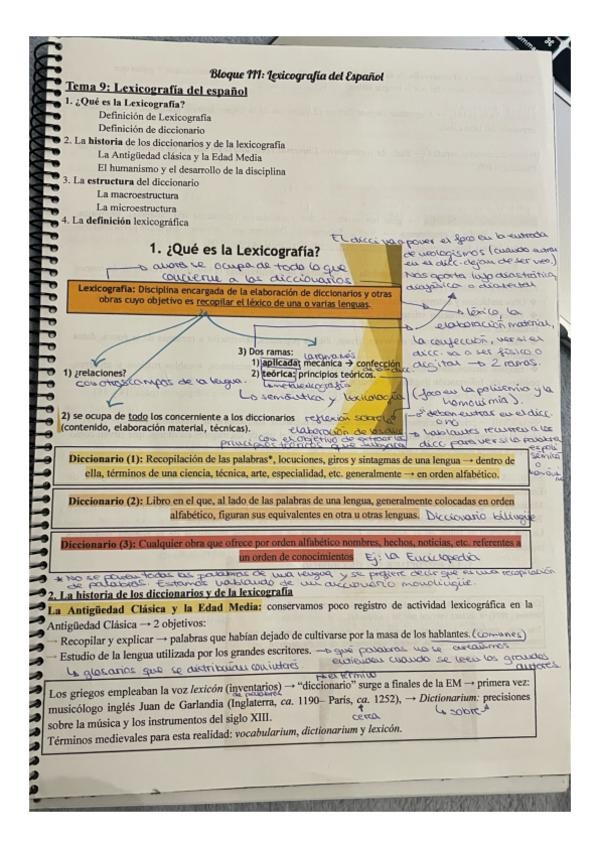 Bloque III: Lexicografía del Español
Tema 9: Lexicografía del español
1. ¿Qué es la Lexicografía?
Definición de Lexicografía
Definición de diccionario
2. La historia de los diccionarios y de la lexicografía
La Antigüedad clásica y la Edad Media
El humanismo y el desarrollo de la disciplina
3. La estructura del diccionario
La macroestructura
La microestructura
4. La definición lexicográfica
El dicci. va a poner el foco en la entrada
de neologismos (cuando entran
en el dicc. dejan de ser neo.)
Nos aporta info diastrática,
diafásica o diatextual
1. ¿Qué es la Lexicografía?
ahora se ocupa de todo lo que
concierne a los diccionarios
Lexicografía: Disciplina encargada de la elaboración de diccionarios y otras
obras cuyo objetivo es recopilar el léxico de una o varias lenguas.
léxico, la
elaboración material,
la confección, ver si el
dicc. va a ser físico o
digital → 2 ramas.
3) Dos ramas:
1) aplicada: mecánica → confección
2) teórica: principios teóricos.
metalexicografía
semántica y lexicología
(foco en la polisemia y la
homonimia).
1) ¿relaciones?
con otros campos de la lengua.
2) se ocupa de todo los concerniente a los diccionarios
(contenido, elaboración material, técnicas).
reflexión sobre
elaboración de los
con el objetivo de extraer los
principios teóricos que
deben entrar en el dicc.
o no
hablantes recurren a los
dicc para ver si la palabra
Diccionario (1): Recopilación de las palabras*, locuciones, giros y sintagmas de una lengua → dentro de
ella, términos de una ciencia, técnica, arte, especialidad, etc. generalmente → en orden alfabético.
Diccionario (2): Libro en el que, al lado de las palabras de una lengua, generalmente colocadas en orden
alfabético, figuran sus equivalentes en otra u otras lenguas. Diccionario bilingüe
Diccionario (3): Cualquier obra que ofrece por orden alfabético nombres, hechos, noticias, etc. referentes a
un orden de conocimientos Ej: La Enciclopedia
* No se ponen todas las palabras de una lengua y se prefiere decir que es una recopilación
de palabras. Estamos hablando de un diccionario monolingüe.
2. La historia de los diccionarios y de la lexicografía
La Antigüedad Clásica y la Edad Media: conservamos poco registro de actividad lexicográfica en la
Antigüedad Clásica → 2 objetivos:
- Recopilar y explicar → palabras que habían dejado de cultivarse por la masa de los hablantes. (comunes)
- Estudio de la lengua utilizada por los grandes escritores. → qué palabras no se
entienden cuando se leen los grandes
autores
glosarios que se distribuían
el término
Los griegos empleaban la voz lexicón (inventarios) → "diccionario" surge a finales de la EM → primera vez:
de palabras
musicólogo inglés Juan de Garlandia (Inglaterra, ca. 1190– París, ca. 1252), → Dictionarium: precisiones
sobre la música y los instrumentos del siglo XIII.
cerca
sobre
Términos medievales para esta realidad: vocabularium, dictionarium y lexicón.